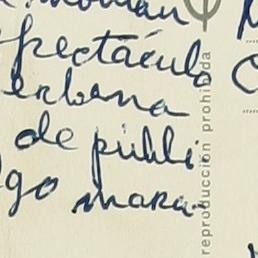 spectáculo
erbena
de públi-
go mara-
reproducción prohibida